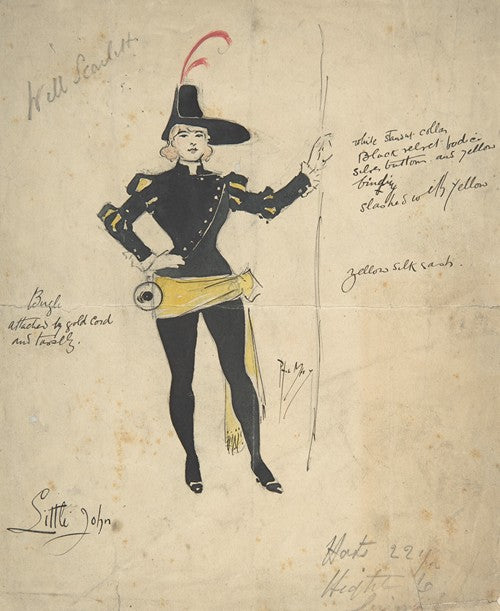 Will Scarlett
white stand collar
Black velvet bodice
silver buttons and yellow
binding
slashed with yellow
yellow silk sash.
Bugle
attached by gold cord
and tassels.
Phil May
Little John
Hat 22 1/2
Height 6